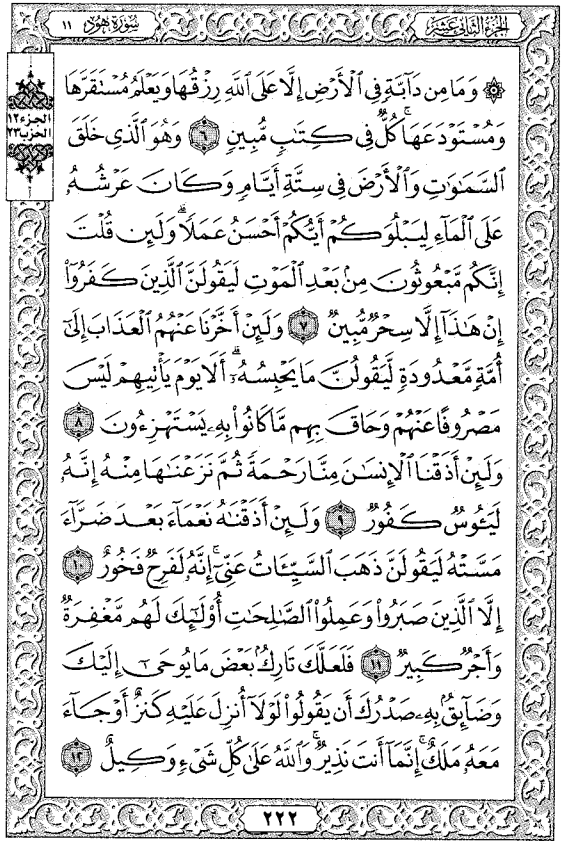 الجزء الثاني عشر
سورة هود ١١
الجزء ١٢
الحزب ٢٣
۞ وَمَا مِن دَآبَّةٍ فِى ٱلْأَرْضِ إِلَّا عَلَى ٱللَّهِ رِزْقُهَا وَيَعْلَمُ مُسْتَقَرَّهَا
وَمُسْتَوْدَعَهَا ۚ كُلٌّ فِى كِتَٰبٍ مُّبِينٍ ٦ وَهُوَ ٱلَّذِى خَلَقَ
ٱلسَّمَٰوَٰتِ وَٱلْأَرْضَ فِى سِتَّةِ أَيَّامٍ وَكَانَ عَرْشُهُۥ
عَلَى ٱلْمَآءِ لِيَبْلُوَكُمْ أَيُّكُمْ أَحْسَنُ عَمَلًا ۗ وَلَئِن قُلْتَ
إِنَّكُم مَّبْعُوثُونَ مِنۢ بَعْدِ ٱلْمَوْتِ لَيَقُولَنَّ ٱلَّذِينَ كَفَرُوٓا۟
إِنْ هَٰذَآ إِلَّا سِحْرٌ مُّبِينٌ ٧ وَلَئِنْ أَخَّرْنَا عَنْهُمُ ٱلْعَذَابَ إِلَىٰٓ
أُمَّةٍ مَّعْدُودَةٍ لَّيَقُولُنَّ مَا يَحْبِسُهُۥٓ ۗ أَلَا يَوْمَ يَأْتِيهِمْ لَيْسَ
مَصْرُوفًا عَنْهُمْ وَحَاقَ بِهِم مَّا كَانُوا۟ بِهِۦ يَسْتَهْزِءُونَ ٨
وَلَئِنْ أَذَقْنَا ٱلْإِنسَٰنَ مِنَّا رَحْمَةً ثُمَّ نَزَعْنَٰهَا مِنْهُ إِنَّهُۥ
لَيَـُٔوسٌ كَفُورٌ ٩ وَلَئِنْ أَذَقْنَٰهُ نَعْمَآءَ بَعْدَ ضَرَّآءَ
مَسَّتْهُ لَيَقُولَنَّ ذَهَبَ ٱلسَّيِّـَٔاتُ عَنِّىٓ ۚ إِنَّهُۥ لَفَرِحٌ فَخُورٌ ١٠
إِلَّا ٱلَّذِينَ صَبَرُوا۟ وَعَمِلُوا۟ ٱلصَّٰلِحَٰتِ أُو۟لَٰٓئِكَ لَهُم مَّغْفِرَةٌ
وَأَجْرٌ كَبِيرٌ ١١ فَلَعَلَّكَ تَارِكٌۢ بَعْضَ مَا يُوحَىٰٓ إِلَيْكَ
وَضَآئِقٌۢ بِهِۦ صَدْرُكَ أَن يَقُولُوا۟ لَوْلَآ أُنزِلَ عَلَيْهِ كَنزٌ أَوْ جَآءَ
مَعَهُۥ مَلَكٌ ۚ إِنَّمَآ أَنتَ نَذِيرٌ ۚ وَٱللَّهُ عَلَىٰ كُلِّ شَىْءٍ وَكِيلٌ ١٢
٢٢٢